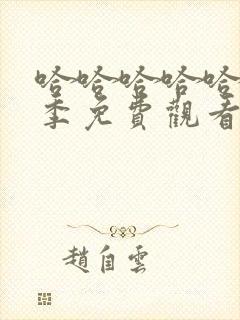 哈哈哈哈哈
季免費觀看
趙自雲